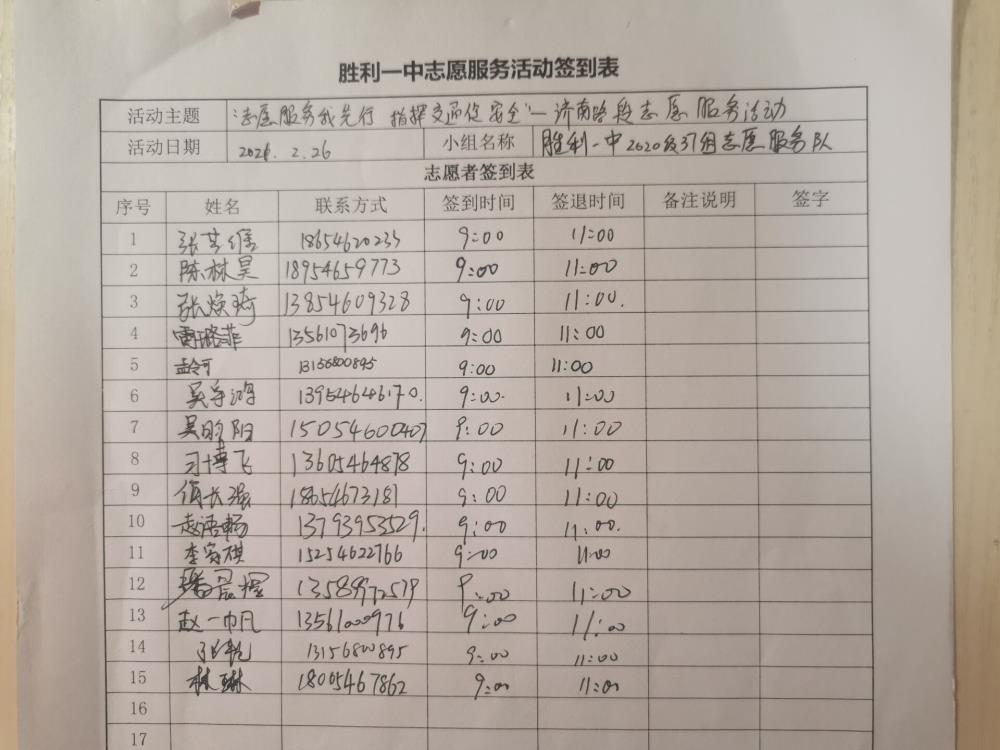 胜利一中志愿服务活动签到表
活动主题 "志愿服务我先行 指挥交通促安全"—济南路段志愿服务活动
活动日期 2021.2.26 小组名称 胜利一中2020级37组志愿服务队
志愿者签到表
序号 姓名 联系方式 签到时间 签退时间 备注说明 签字
1 18654620235 9:00 11:00
2 陈林昊 18954659773 9:00 11:00
3 张焕琦 13854609328 9:00 11:00.
4 雷璐菲 13561073696 9:00 11:00
5 孟令可 13156800895 9:00 11:00
6 13954646170. 9:00. 11:00
7 吴昀阳 15054600407 9:00 11:00
8 刁博飞 13605464878 9:00 11:00
9 18654673181 9:00 11:00
10 赵浩畅 13793953529. 9:00 11:00.
11 李寅祺 15254622766 9:00 11:00
12 潘晨熠 13589972579 9:00 11:00
13 赵一帆 13561000976 9:00 11:00
14 13156800895 9:00 11:00
15 林琳 18005467862 9:00 11:00
16
17